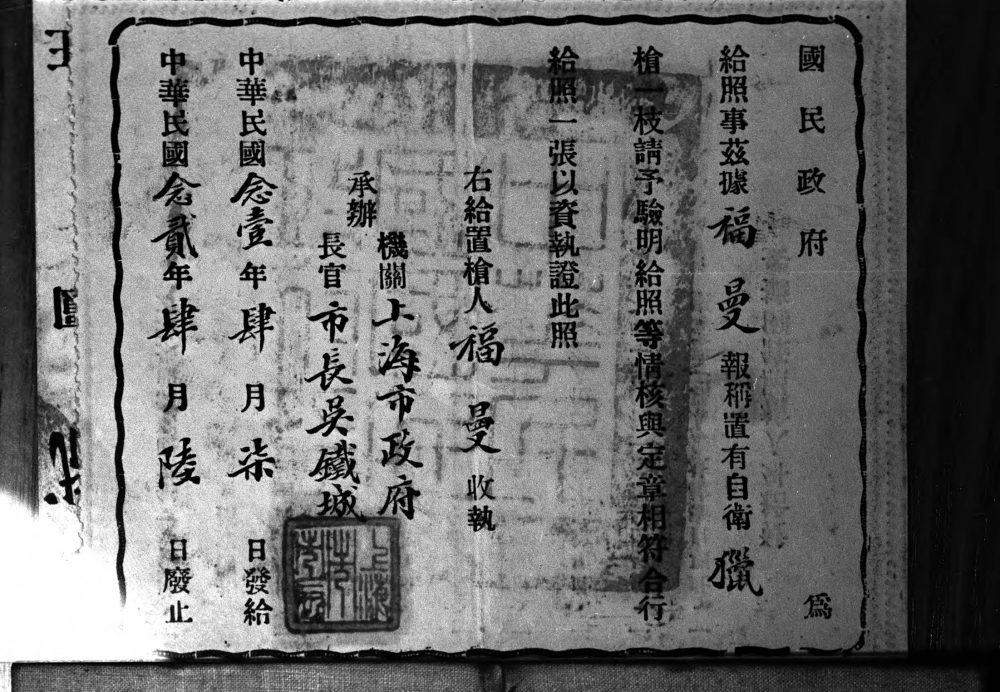 國民政府為
給照事茲據福曼報稱置有自衛獵
槍一枝請予驗明給照等情核與定章相符合行
給照一張以資執證此照
右給置槍人福曼收執
承辦
機關上海市政府
長官市長吳鐵城
中華民國念壹年肆月柒日發給
中華民國念貳年肆月陸日廢止